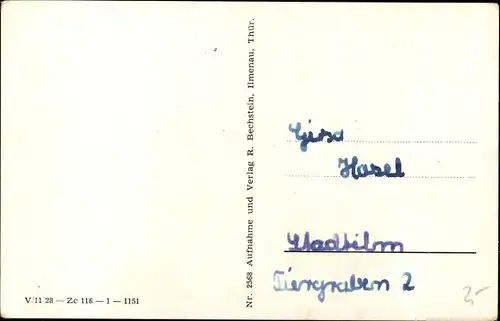 Nr. 2568 Aufnahme und Verlag R. Bechstein, Ilmenau, Thür.
Gisa
Hasel
Stadtilm
Tiergraben 2
V 11 28 — Zc 116 — 1 — 1151